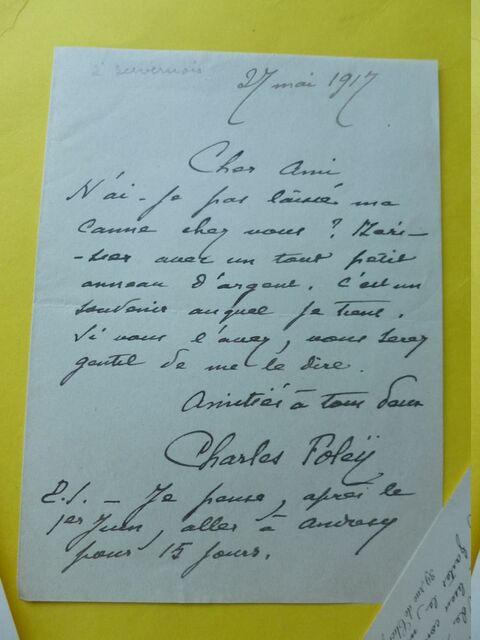 à
27 mai 1917
Cher Ami
N'ai-je pas laissé ma
canne chez vous ? Meri-
-sier avec un tout petit
anneau d'argent. C'est un
souvenir auquel je tiens.
Si vous l'avez, vous serez
gentil de me le dire.
Amitiés à tous deux
Charles Foleÿ
P.S. - Je pense, après le
1er Juin, aller à Andresy
pour 15 jours.
39, rue